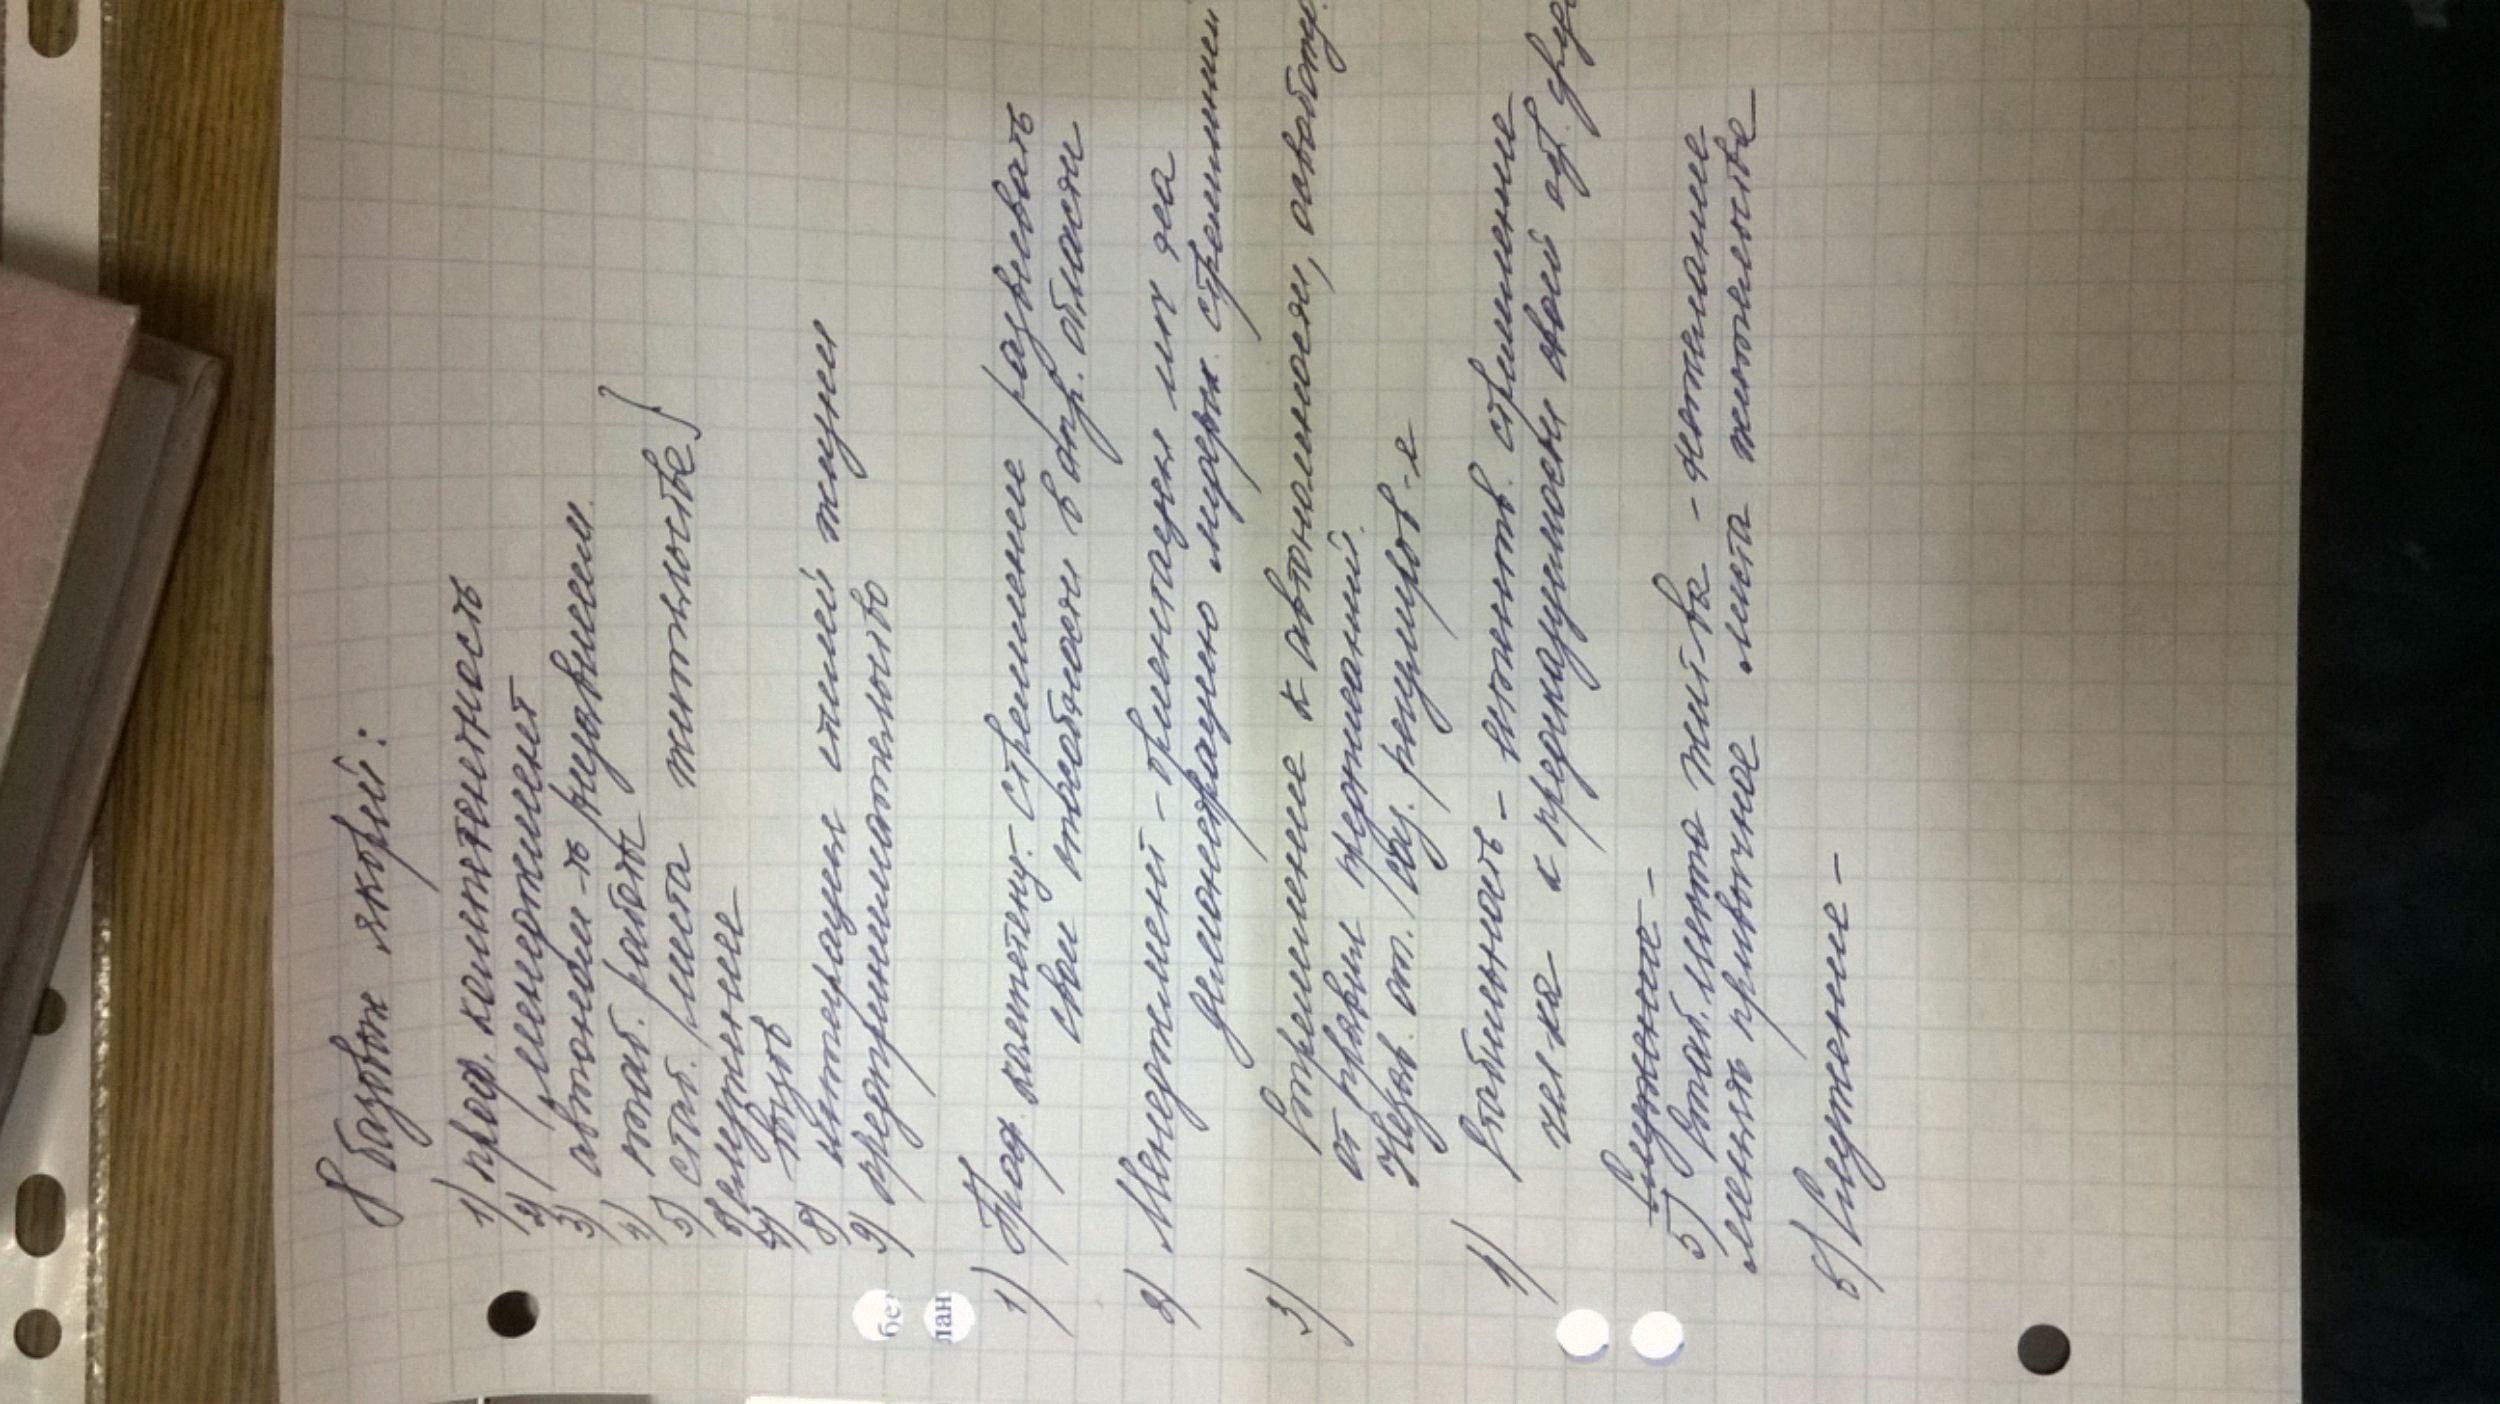 8 базовых якорей:
1) проф. компетентность
2) менеджмент
3) автоном-ть /независим.
4) стаб. работы
5) стаб. /места жительства/.
6) служение
7) вызов
8) интеграция стилей жизни
9) предпринимательство
1) Проф. компетенц. - стремление развивать
свои способности в опр. области
2) Менеджмент - ориентация лич на
демонстрацию
стремлении
3) Стремление к автономности,
от предписаний.
Незав. от.
4) Стабильность - стремление
чел-ка к предсказуемости своей
Служение -
5) Стаб. места жит-ва - нежелание
менять привычное место жительства
6) Служение -
бе
лан